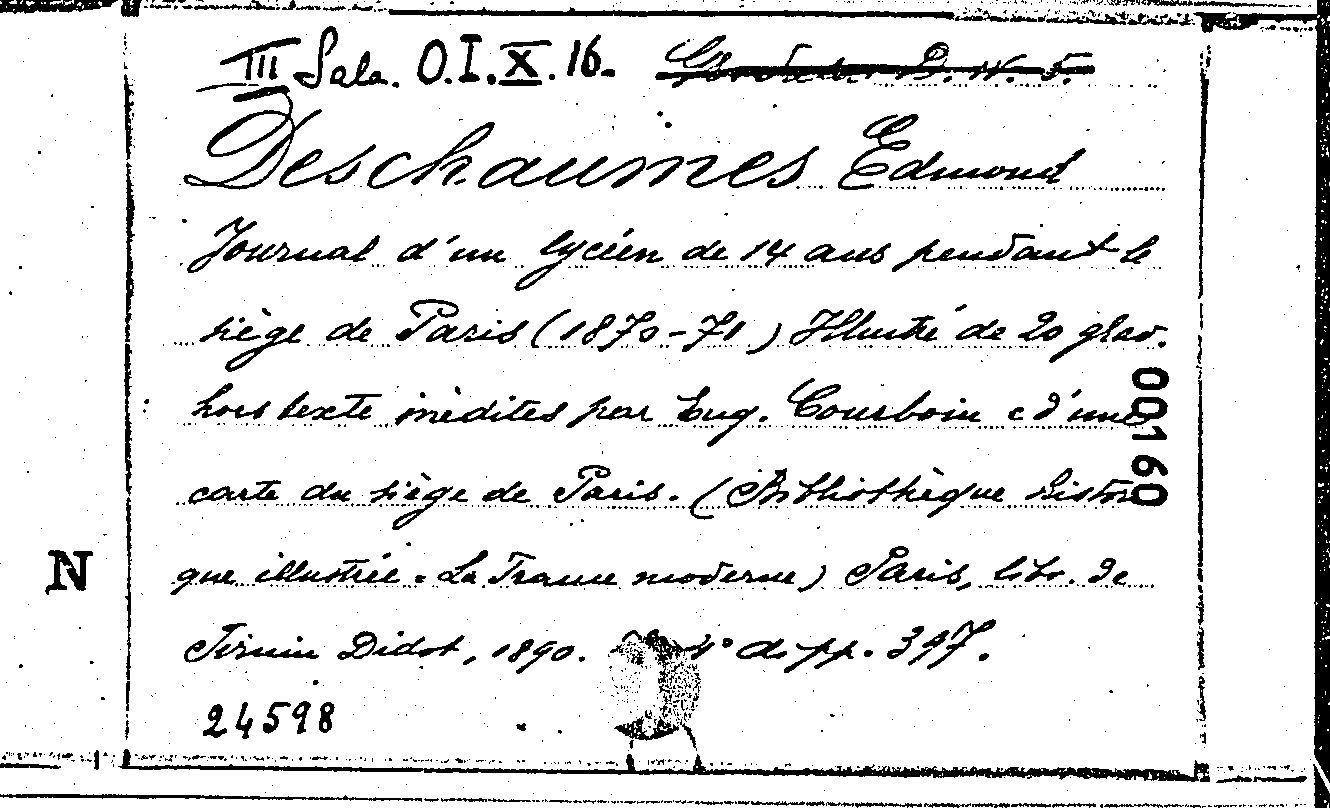 III Sala. O.I.X.16.
Deschaumes Edmond
Journal d'un lycéen de 14 ans pendant le
siège de Paris (1870-71) Illustré de 20 grav.
hors texte inédites par Eug. Courboin e d'une
carte du siège de Paris. (Bibliothèque histori
que illustrée. La France moderne) Paris, libr. de
Firmin Didot, 1890. 4° di pp. 397.
24598
00160
N